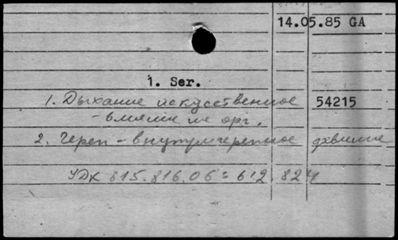 14.05.85 GA
1. Ser.
1. Дыхание искусственное 54215
- влияние на орг.
2. Череп - внутричерепное давление
УДК 815.816.06:612.824